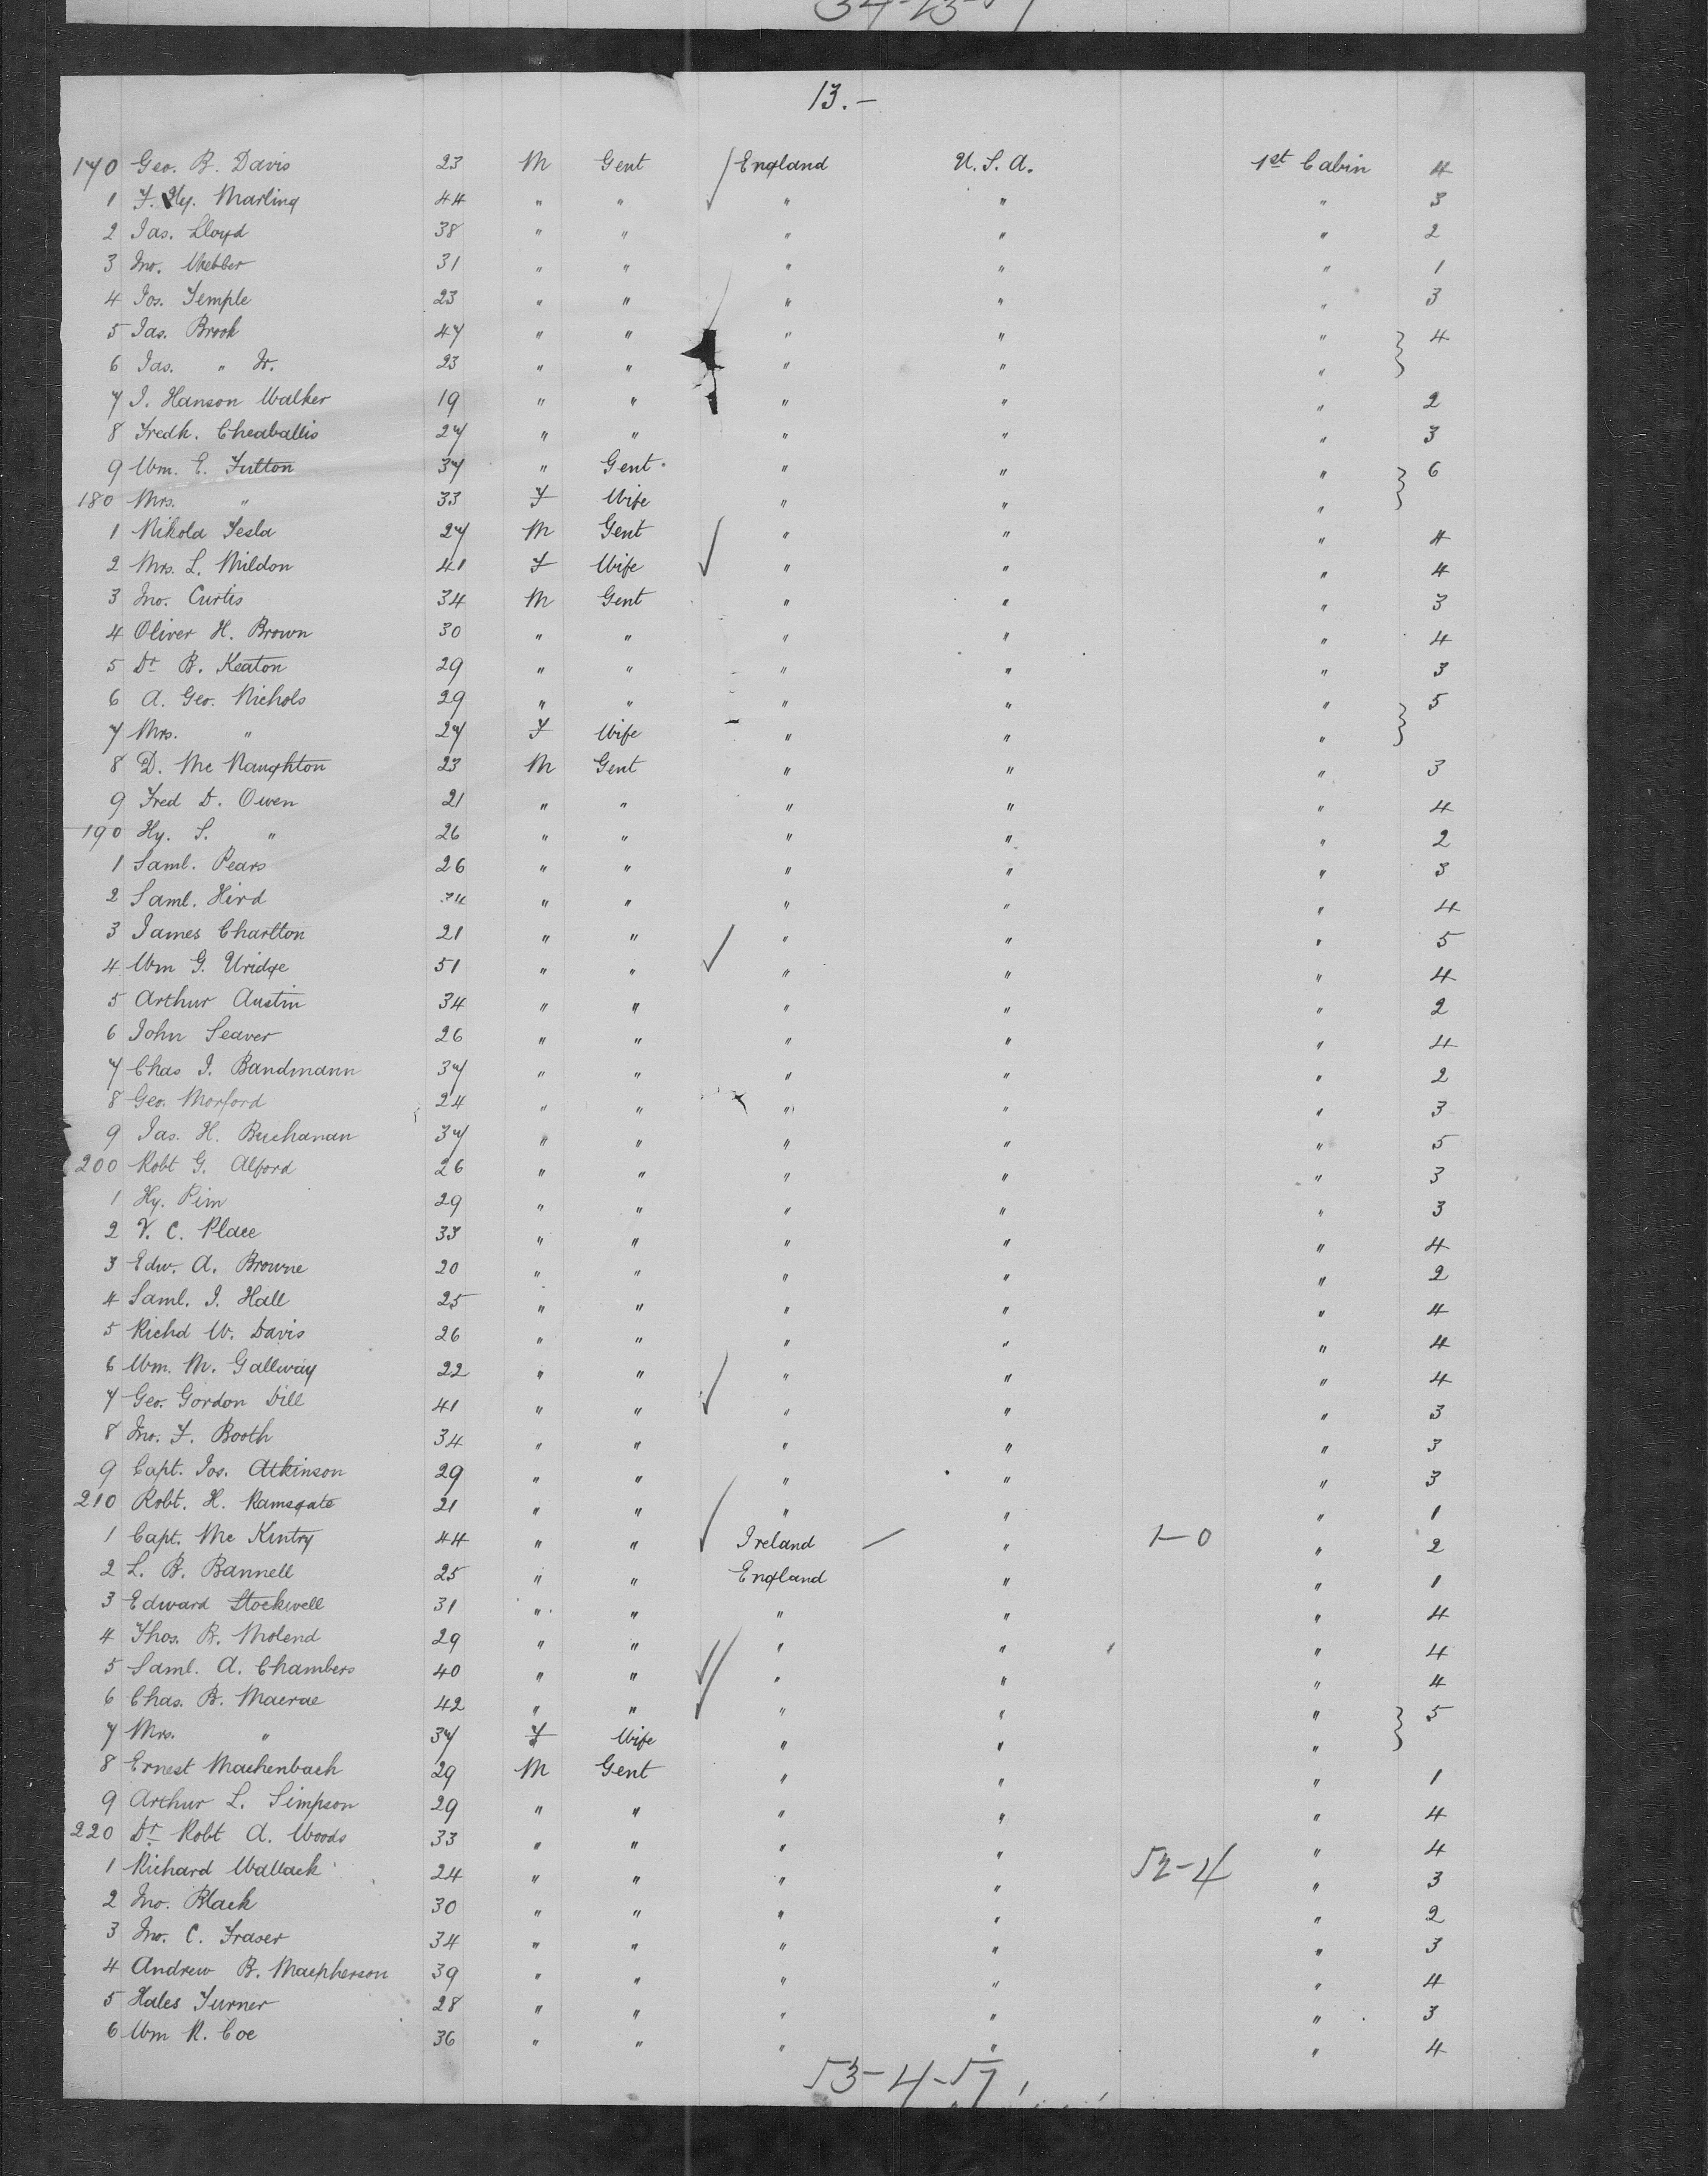 13.-
170 Geo. B. Davis 23 M Gent England U.S.A. 1st Cabin 4
1 F. Hy. Marling 44 " " " " " 3
2 Jas. Lloyd 38 " " " " " 2
3 Jno. Webber 31 " " " " " 1
4 Jos. Temple 23 " " " " " 3
5 Jas. Brook 47 " " " " " 4
6 Jas. " Jr. 23 " " " " "
7 J. Hanson Walker 19 " " " " " 2
8 Fredk. Cheaballis 27 " " " " " 3
9 Wm. E. Fulton 37 " Gent. " " " 6
180 Mrs. " 33 F Wife " " "
1 Nikola Tesla 27 M Gent " " " 4
2 Mrs. L. Mildon 41 F Wife " " " 4
3 Jno. Curtis 34 M Gent " " " 3
4 Oliver H. Brown 30 " " " " " 4
5 Dr B. Keaton 29 " " " " " 3
6 A. Geo. Nichols 29 " " " " " 5
7 Mrs. " 27 F Wife " " "
8 D. Mc Naughton 23 M Gent " " " 3
9 Fred D. Owen 21 " " " " " 4
190 Hy. S. " 26 " " " " " 2
1 Saml. Pears 26 " " " " " 3
2 Saml. Hird 34 " " " " " 4
3 James Charlton 21 " " " " " 5
4 Wm G. Uridge 51 " " " " " 4
5 Arthur Austin 34 " " " " " 2
6 John Seaver 26 " " " " " 4
7 Chas J. Bandmann 37 " " " " " 2
8 Geo. Morford 24 " " " " " 3
9 Jas. H. Buchanan 37 " " " " " 5
200 Robt G. Alford 26 " " " " " 3
1 Hy. Pim 29 " " " " " 3
2 V. C. Place 33 " " " " " 4
3 Edw. A. Browne 20 " " " " " 2
4 Saml. J. Hall 25 " " " " " 4
5 Richd W. Davis 26 " " " " " 4
6 Wm. M. Gallway 22 " " " " " 4
7 Geo. Gordon Dill 41 " " " " " 3
8 Jno. F. Booth 34 " " " " " 3
9 Capt. Jos. Atkinson 29 " " " " " 3
210 Robt. H. Ramsgate 21 " " " " " 1
1 Capt. Mc Kintry 44 " " Ireland " 1-0 " 2
2 L. B. Bannell 25 " " England " " 1
3 Edward Stockwell 31 " " " " " 4
4 Thos. B. Molend 29 " " " " " 4
5 Saml. A. Chambers 40 " " " " " 4
6 Chas. B. Macrae 42 " " " " " 5
7 Mrs. " 37 F Wife " " "
8 Ernest Machenbach 29 M Gent " " " 1
9 Arthur L. Simpson 29 " " " " " 4
220 Dr Robt A. Woods 33 " " " " " 4
1 Richard Wallack 24 " " " " 52-4 " 3
2 Jno. Black 30 " " " " " 2
3 Jno. C. Fraser 34 " " " " " 3
4 Andrew B. Macpherson 39 " " " " " 4
5 Hales Turner 28 " " " " " 3
6 Wm R. Coe 36 " " " " " 4
53-4-57